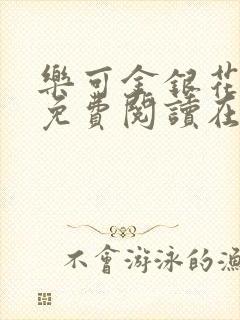 樂可金銀花
免費閱讀在
不會游泳的漁